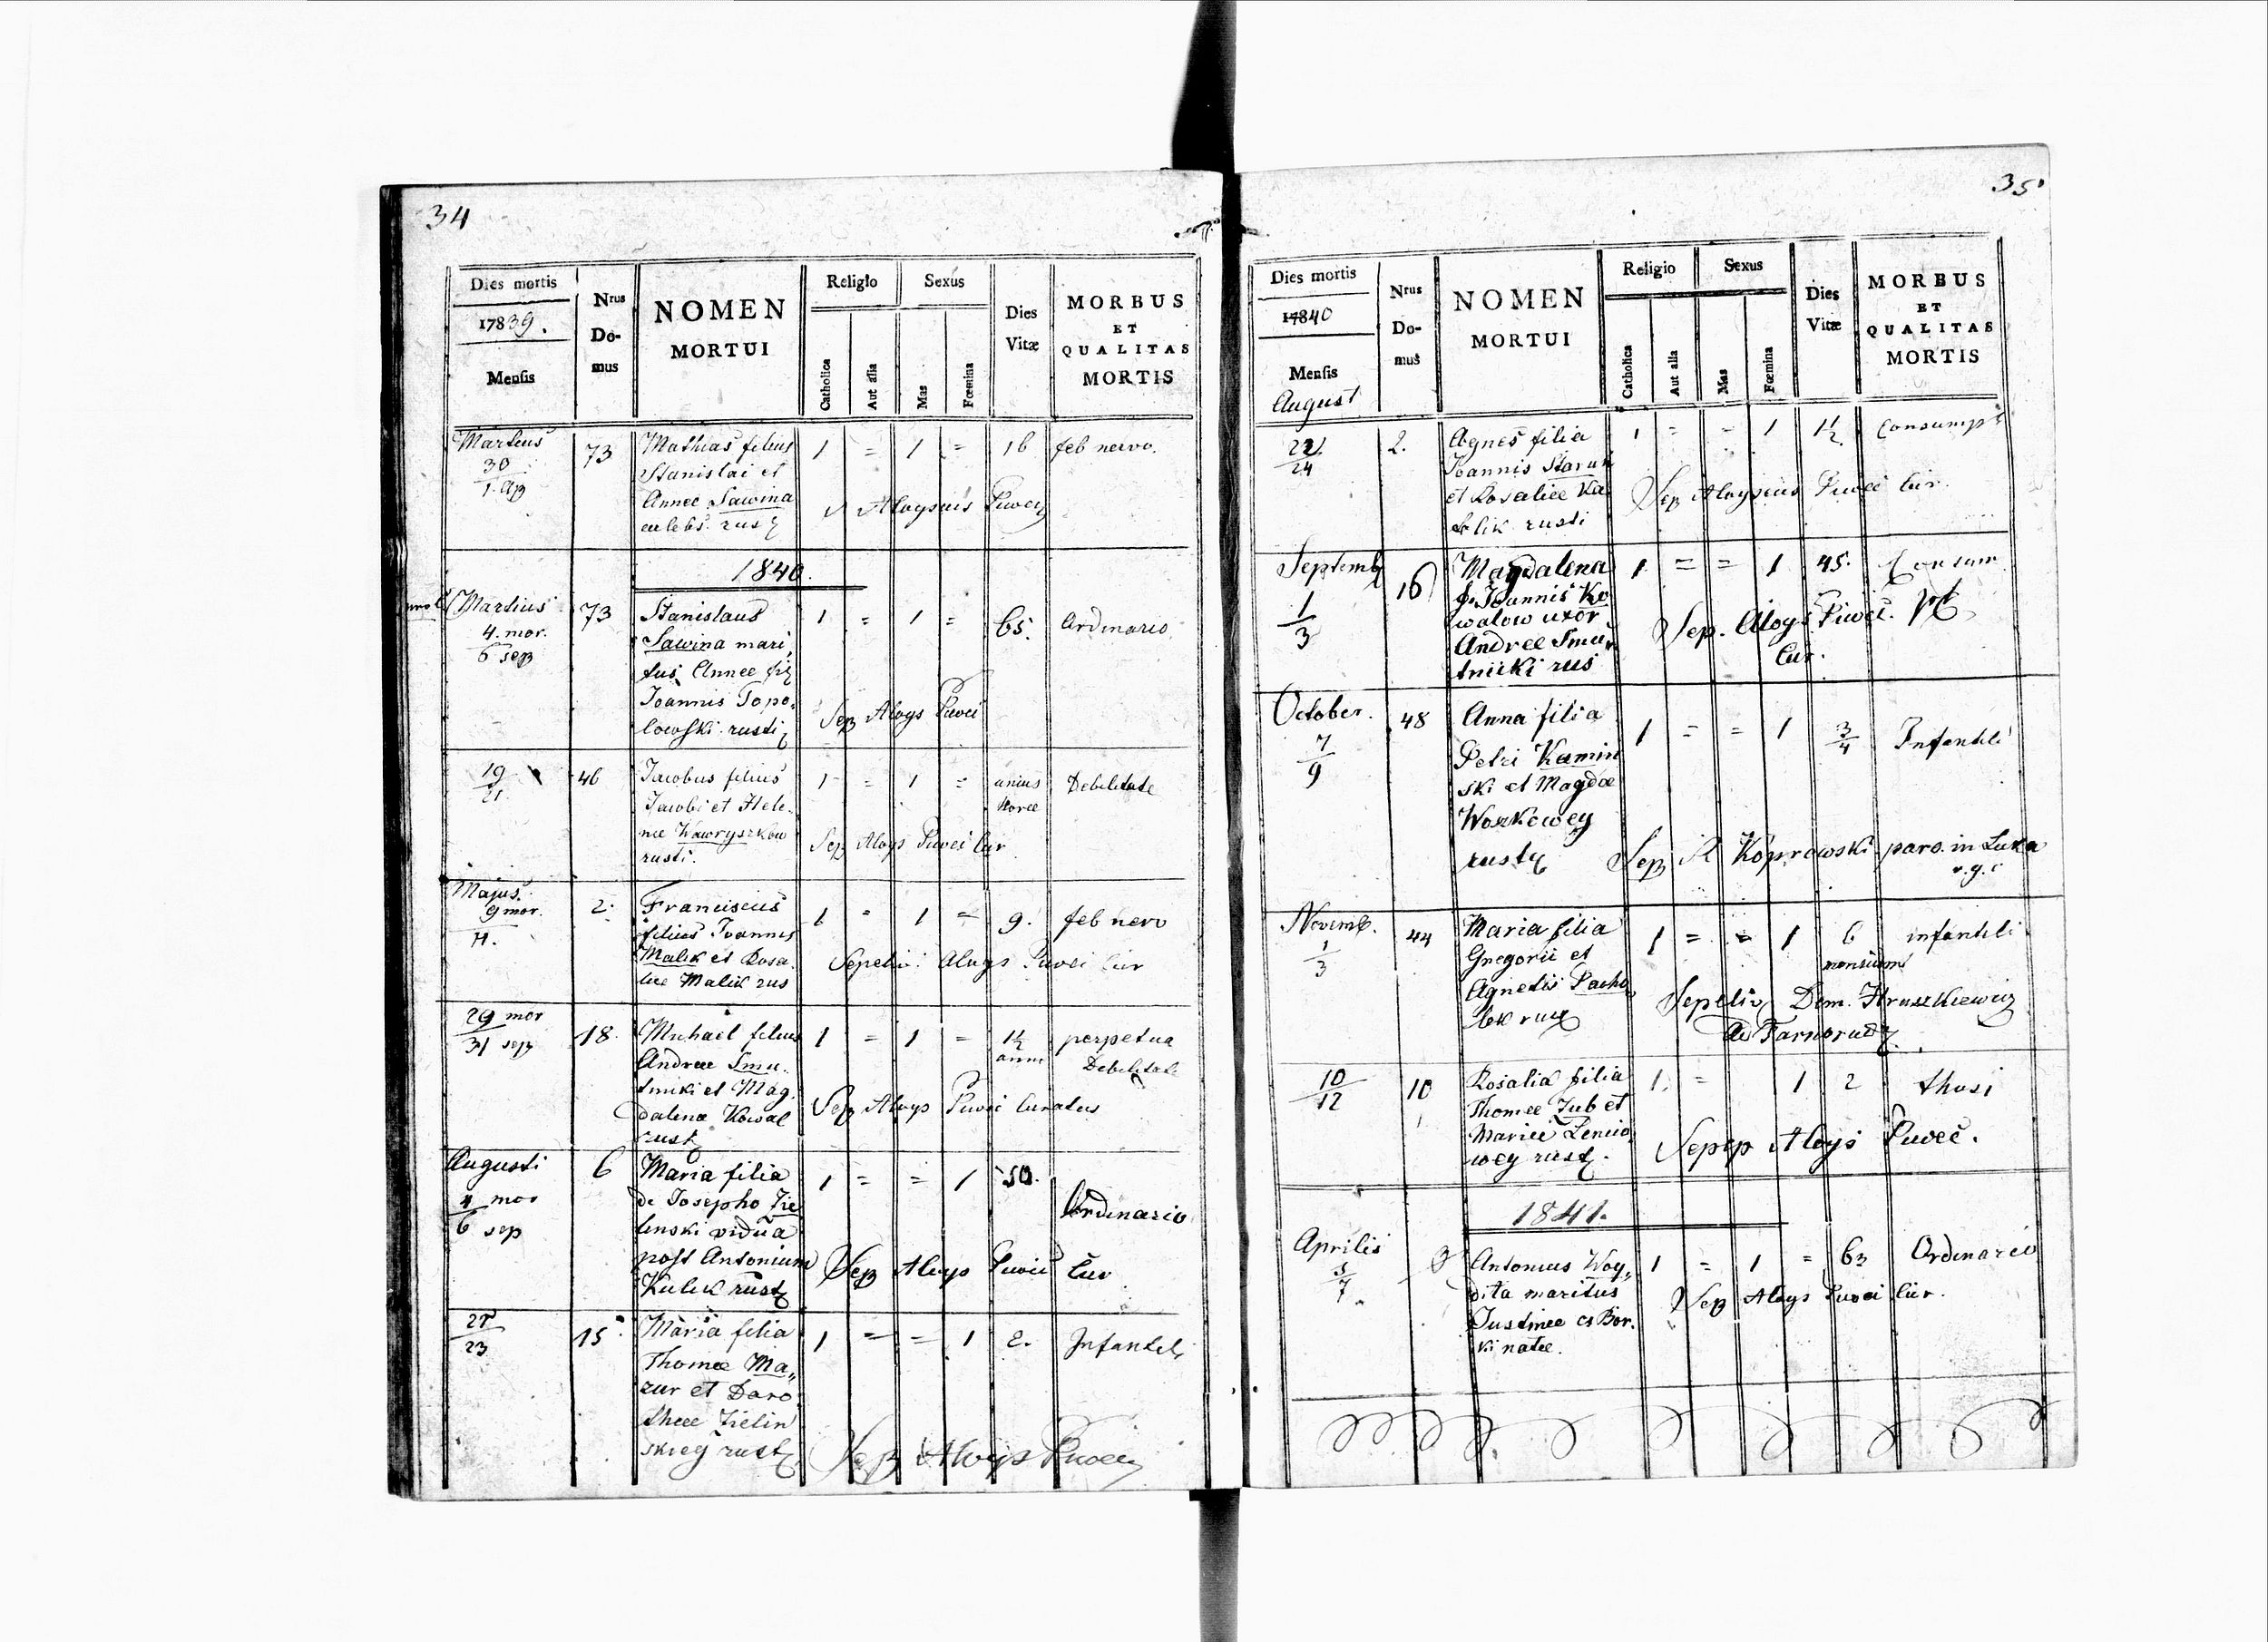 34
Dies mortis
17839.
Mensis
Nrus
Do-
mus
NOMEN
MORTUI
Religio
Catholica
Aut alia
Sexus
Mas
Fœmina
Dies
Vitæ
MORBUS
ET
QUALITAS
MORTIS
Martius
30
1. Ap
73
Mathias filius
Stanislai et
Annee Sawina
rus
1 = 1 = 16 feb nervo.
Aloysius
1840.
Martius
4. mor.
6 sep
73
Stanislaus
Sawina mari,
tus Annee fil
Joannis Topo,
lowski rusti
1 = 1 = 65. Ordinario
Sep Aloys Puvei
19
21
46
Jacobus filius
Jacobi et Hele-
nee Wawryszkow
rusti.
1 = 1 = unius
horee
Debilitate
Sep Aloys Puvei Cur
Majus.
9 mor.
11.
2.
Franciscus
filius Joannis
Malik et Rosa
liee Malik rus
1 = 1 = 9. feb nervo
Aloys Puvei Cur
29 mor
31 sep
18.
Michael filius
Andreae Smu-
tniki et Mag-
dalena Kowal
rust
1 = 1 = 1½
anni
perpetua
Debilitate
Sep Aloys Puvei Curatus
Augusti
4 mor
6 sep
6
Maria filia
de Josepho Zie
linski vidua
post Antonium
Kulik rust
1 = = 1 50.
Ordinario
Sep Aloys Puvei Cur
21
23
15
Maria filia
Thomee Ma,,
zur et Doro
theee Zielin
skiey rust
1 = = 1 2. Infantil
Sep Aloys Puvei
35
Dies mortis
17840
Mensis
August
Nrus
Do-
mus
NOMEN
MORTUI
Religio
Catholica
Aut alia
Sexus
Mas
Fœmina
Dies
Vitæ
MORBUS
ET
QUALITAS
MORTIS
22
24
2.
Agnes filia
Joannis
et Rosaliee
rusti
1 = = 1 1½ Consumpt
Sep Aloysius Puvei Cur.
Septemb
1
3
16
Magdalena
f. Joannis Ko
walow uxor
Andree Smu,
tnicki rus
1 = = 1 45. Consum
pt
Sep. Aloys Puvei.
Cur.
October.
7
9
48
Anna filia
Petri Kamin
ski et Magdae
Woskowey
rust
1 = = 1 3/4 Infantili
Sep Koprowski paro. in Luka
r.g.c
Novemb.
1
3
44
Maria filia
Gregorii et
Agnetis Pacho
lek
1 = = 1 6
mensium
infantili
Sepeliv Dom. Hruszkiewicz
de Tarnoruda
10
12
10
Rosalia filia
Thomee Zub et
Mariee Lencio
wey rust.
1 = 1 2 thusi
Sep Aloys Puvei.
1841.
Aprilis
5
7
Antonius Woy,,
dita maritus
Justinee cs Bor.
ki natee.
1 = 1 = 63 Ordinario
Sep Aloys Puvei Cur.